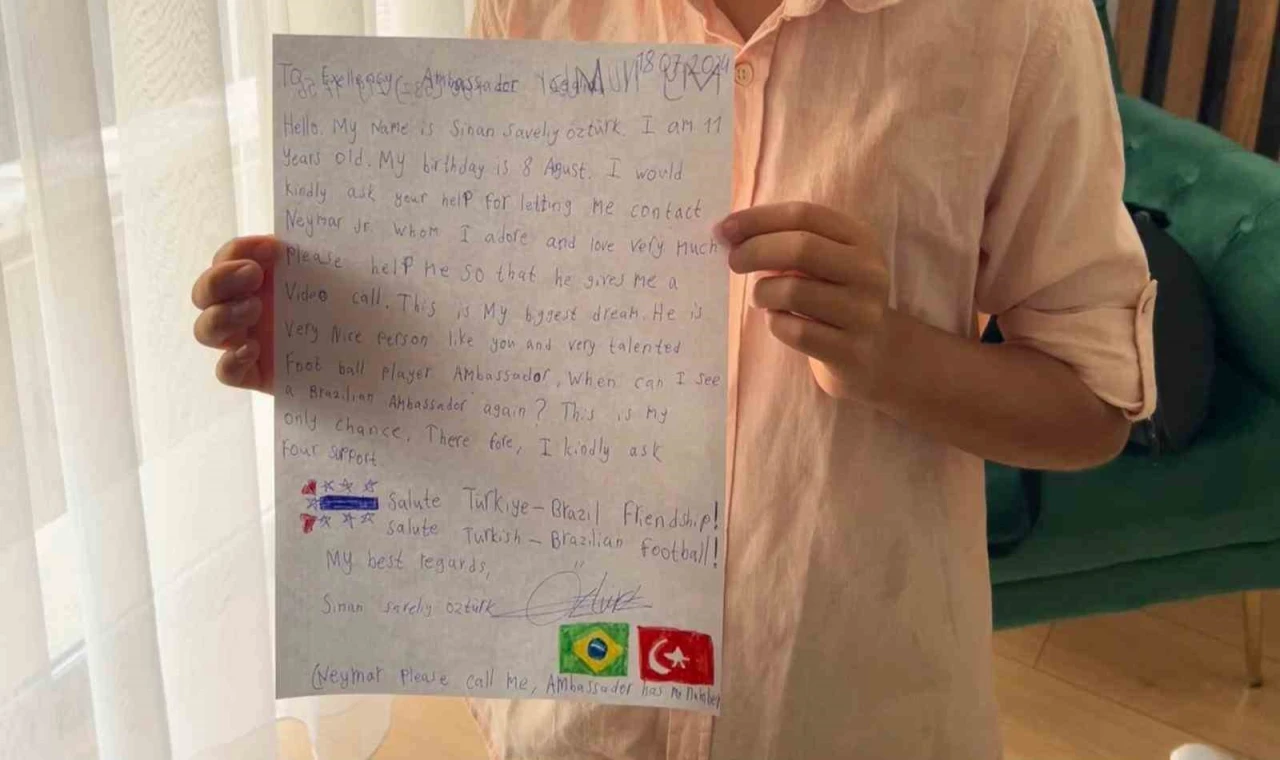 18.07.2024
To Exellency Ambassador
Hello. My Name is Sinan Saveliy öztürk. I am 11
years old. My birthday is 8 Agust. I would
kindly ask your help for letting me contact
Neymar Jr. whom I adore and love very much
please help me so that he gives me a
Video call. This is My biggest dream. He is
very Nice person like you and very talented
Foot ball player Ambassador, When can I see
a Brazilian Ambassador again? This is my
only chance. There fore, I kindly ask
Your support
Salute Türkiye-Brazil Friendship!
salute Turkish-Brazilian football!
My best regards,
Sinan saveliy öztürk
(Neymar please call me, Ambassador has my number